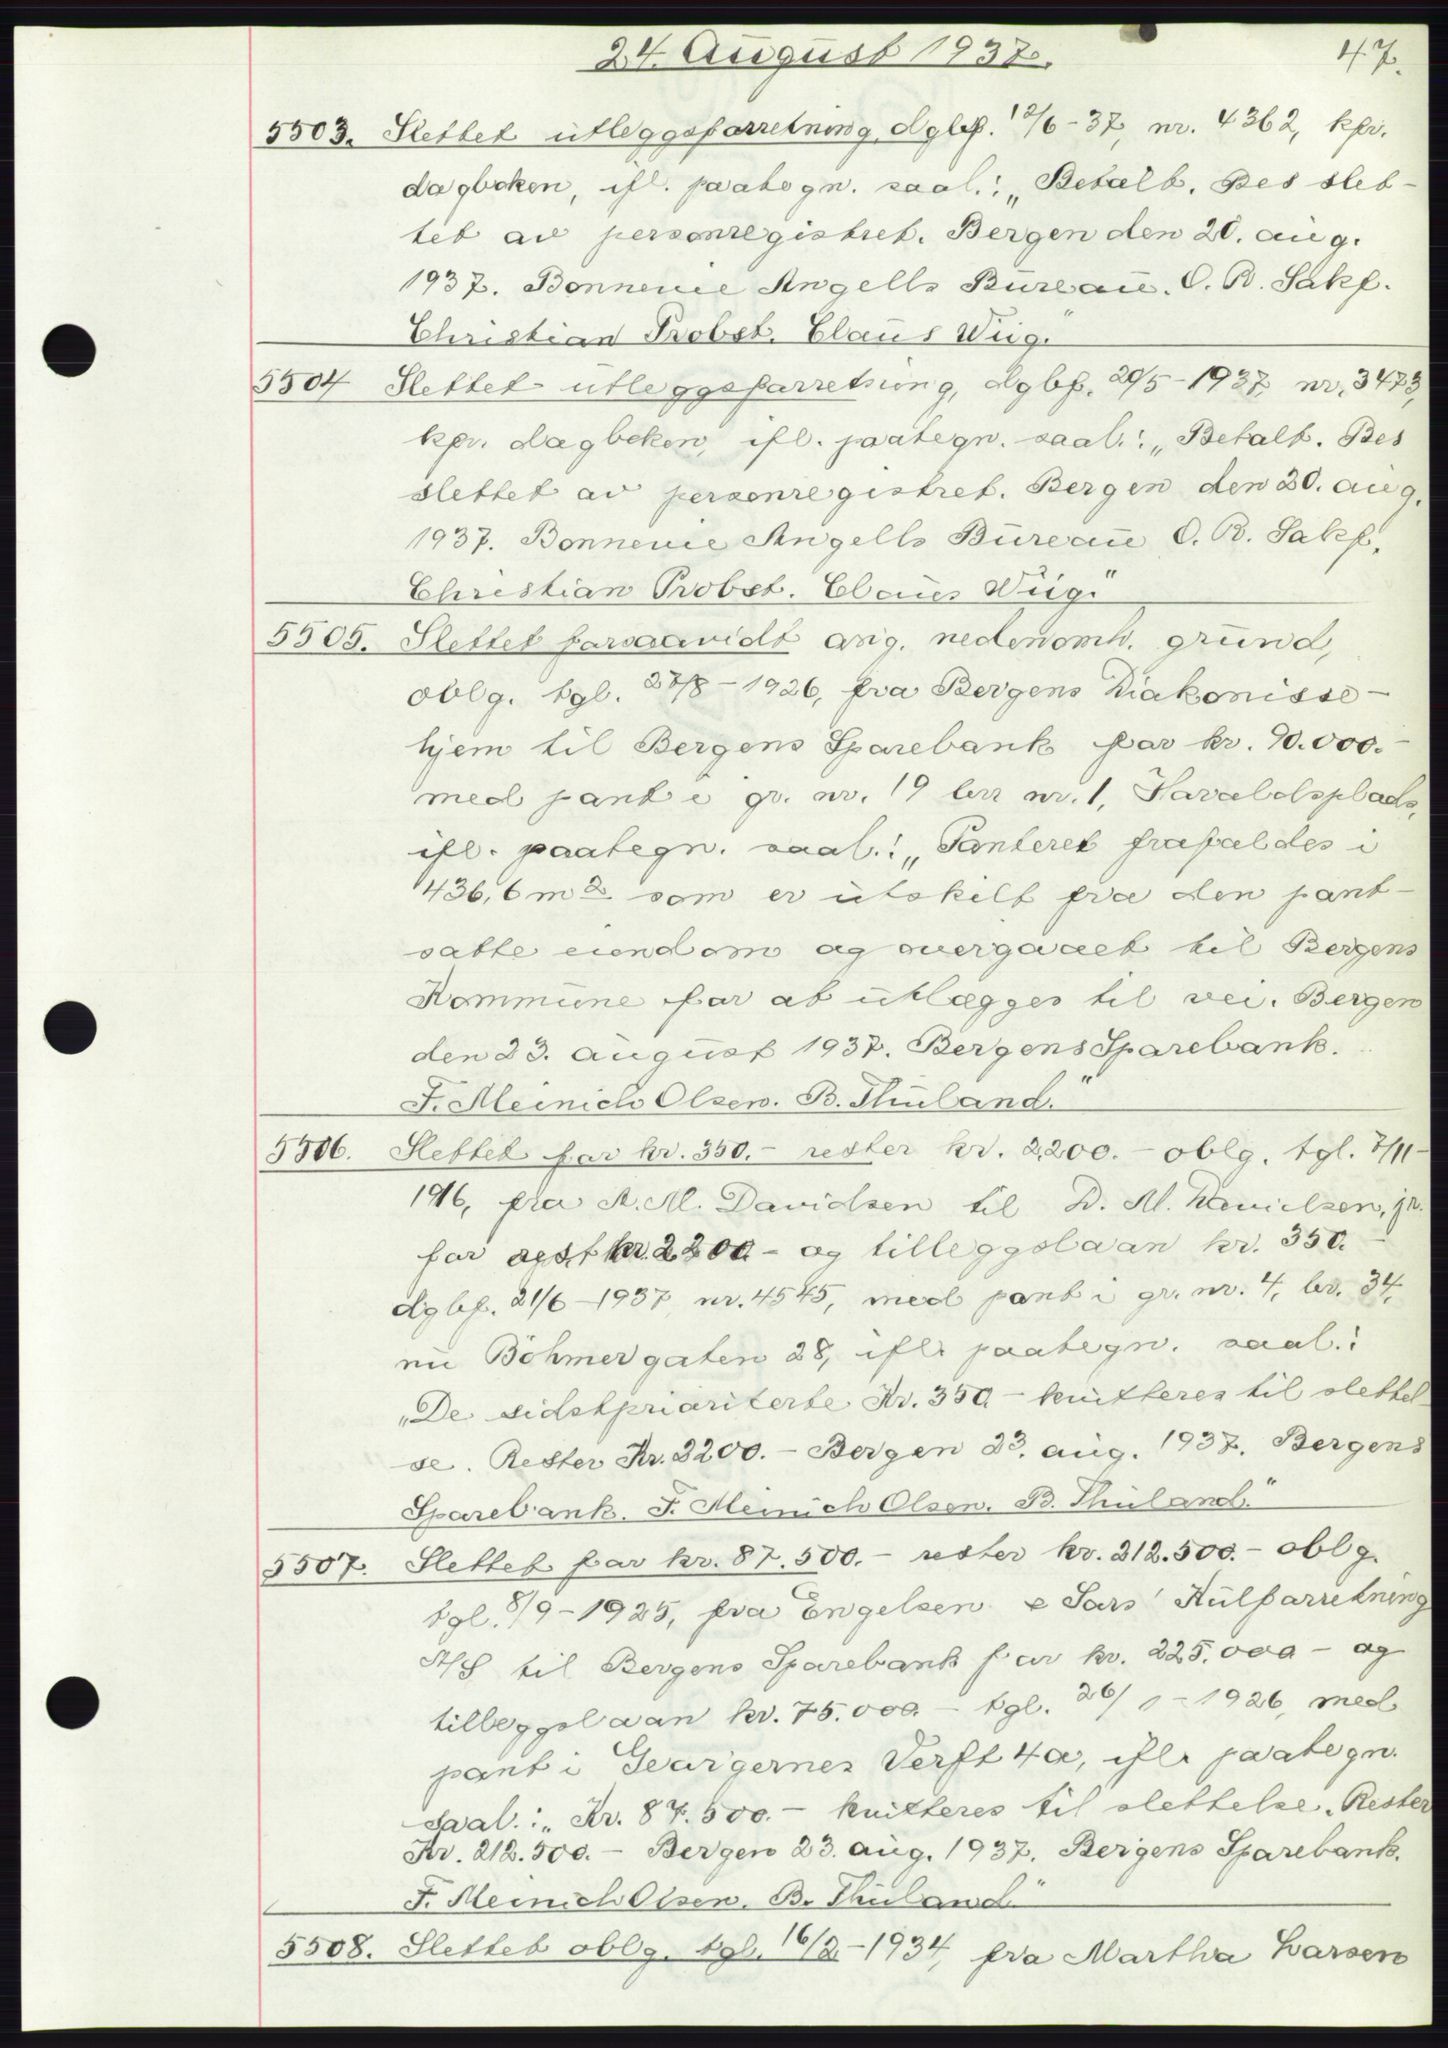 24. August 1937.
47.
5503. Slettet utleggsforretning, dgbf. 12/6-37, nr. 4362, kfr.
dagboken, ifl. paategn. saal.: „Betalt. Bes slet-
tet av personregistret. Bergen den 20. aug.
1937. Bonnevie Angells Bureau. O. R. Sakf.
Christian Probst. Claus Wiig."
5504 Slettet utleggsforretning, dgbf. 20/5-1937, nr. 3473,
kfr. dagboken, ifl. paategn. saal.: „Betalt. Bes
slettet av personregistret. Bergen den 20. aug.
1937. Bonnevie Angells Bureau O. R. Sakf.
Christian Probst. Claus Wiig."
5505. Slettet forsaavidt ang. nedennemh. grund,
oblg. tgl. 27/8-1926, fra Bergens Diakonisse-
hjem til Bergens Sparebank for kr. 90.000.-
med pant i gr. nr. 19 br. nr. 1, Haraldsplads,
ifl. paategn. saal.: „Panteret frafaldes i
436,6 m2 som er utskilt fra den pant-
satte eiendom og overgaaet til Bergens
Kommune for at utlægges til vei. Bergen
den 23. august 1937. Bergens Sparebank.
F. Meinich Olsen. B. Thuland."
5506. Slettet for kr. 350.- rester kr. 2.200.- oblg. tgl. 7/11-
1916, fra A. M. Davidsen til D. M. Danielsen, jr.
for rest kr. 2200.- og tilleggslaan kr. 350.-
dgbf. 21/6-1937, nr. 4545, med pant i gr. nr. 4, br. 34,
nu Böhmergaten 28, ifl. paategn. saal.:
„De sidstprioriterte Kr. 350.- kvitteres til slettel-
se. Rester Kr. 2200.- Bergen 23. aug. 1937. Bergens
Sparebank. F. Meinich Olsen. B. Thuland."
5507. Slettet for kr. 87.500.- rester kr. 212.500.- oblg.
tgl. 8/9-1925, fra Engelsen & Sars' Kulforretning
A/S til Bergens Sparebank for kr. 225.000- og
tilleggslaan kr. 75.000.- tgl. 26/1-1926, med
pant i Georgernes Verft 4a, ifl. paategn.
saal.: „Kr. 87.500.- kvitteres til slettelse. Rester
Kr. 212.500.- Bergen 23. aug. 1937. Bergens Sparebank.
F. Meinich Olsen. B. Thuland."
5508. Slettet oblg. tgl. 16/2-1934, fra Martha Larsen